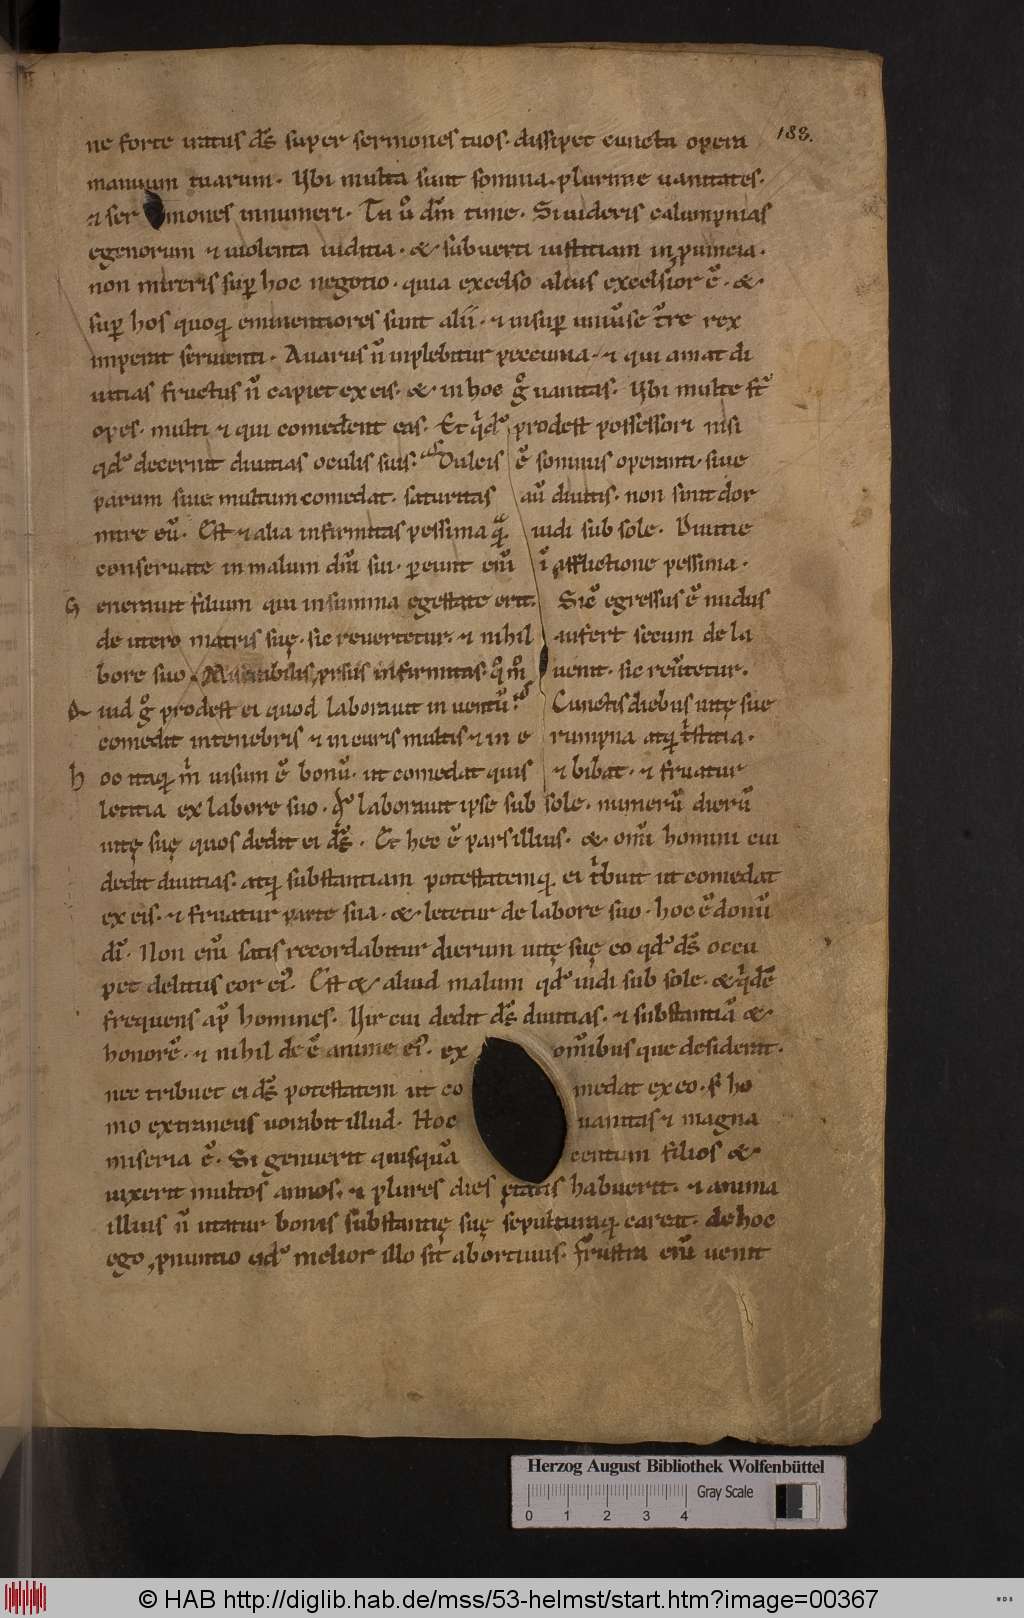 183.
ne forte iratus ds̄ super sermones tuos. dissipet cuncta opera
manuum tuarum. Ubi multa sunt somnia. plurime uanitates.
⁊ ser mones innumeri. Tu u̅ dm̄ time. Si uideris calumpnias
egenorum ⁊ uiolenta iuditia. & subuerti iustitiam in ꝓuincia.
non mireris suꝑ hoc negotio. quia excelso alius excelsior ē. &
suꝑ hos quoq; eminentiores sunt alii. ⁊ insuꝑ uniu̅se tr̄e rex
imperat seruienti. Auarus n̄ inplebitur peccunia. ⁊ qui amat di
uitias fructus n̄ capiet ex eis. & in hoc gͦ uanitas. Ubi multe st̄
opes. multi ⁊ qui comedent eas. Et qͥd prodest possessori nisi
qd̄ decernit diuitias oculis suis. Dulcis ē somnus operanti. siue
parum siue multum comedat. saturitas au̅ diuitis. non sinit dor
mire eū. Est ⁊ alia infirmitas pessima qͣ̄ uidi sub sole. Diuitie
conseruate in malum dn̄i sui. pereunt eni̅ ī afflictione pessima.
G enerauit filium qui in summa egestate erit. Sic̄ egressus ē nudus
de utero matris suę. sic reuertetur. ⁊ nihil aufert secum de la
bore suo. Miserabilis ꝓrsus infirmitas. qͦm̊ uenit. sic reu̅tetur.
Q uid gͦ prodest ei quod laborauit in uentū? Cunctis diebus uitę sue
comedit in tenebris ⁊ in curis multis ⁊ in e rumpna atq; tͥstitia.
H oc itaq; mͥ uisum ē bonū. ut comedat quis ⁊ bibat. ⁊ fruatur
letitia ex labore suo. qͦ laborauit ipse sub sole. numerū dierū
uitę suę quos dedit ei ds̄. Et hec ē pars illius. & omi̅ homini cui
dedit diuitias. atq; substantiam potestatemq; ei tͥbuit ut comedat
ex eis. ⁊ fruatur parte sua. & letetur de labore suo. hoc ē donū
dī. Non eni̅ satis recordabitur dierum uitę suę eo qd̄ ds̄ occu
pet delitiis cor ei᷒. Est & aliud malum qd̄ uidi sub sole. & qͥdē
frequens ap̄ homines. Uir cui dedit ds̄ diuitias. ⁊ substantiā &
honorē. ⁊ nihil deē anime ei᷒. ex om̄ibus que desiderat.
nec tribuet ei ds̄ potestatem ut co medat ex eo. s; ho
mo extraneus uorabit illud. Hoc uanitas ⁊ magna
miseria ē. Si genuerit quisquā centum filios &
uixerit multos annos. ⁊ plures dies ętatis habuerit. ⁊ anima
illius n̄ utatur bonis substantię suę sepulturaq; careat. de hoc
ego ꝓnuntio qd̄ melior illo sit abortiuus. frustra eni̅ uenit
Herzog August Bibliothek Wolfenbüttel
Gray Scale
0 1 2 3 4
© HAB http://diglib.hab.de/mss/53-helmst/start.htm?image=00367